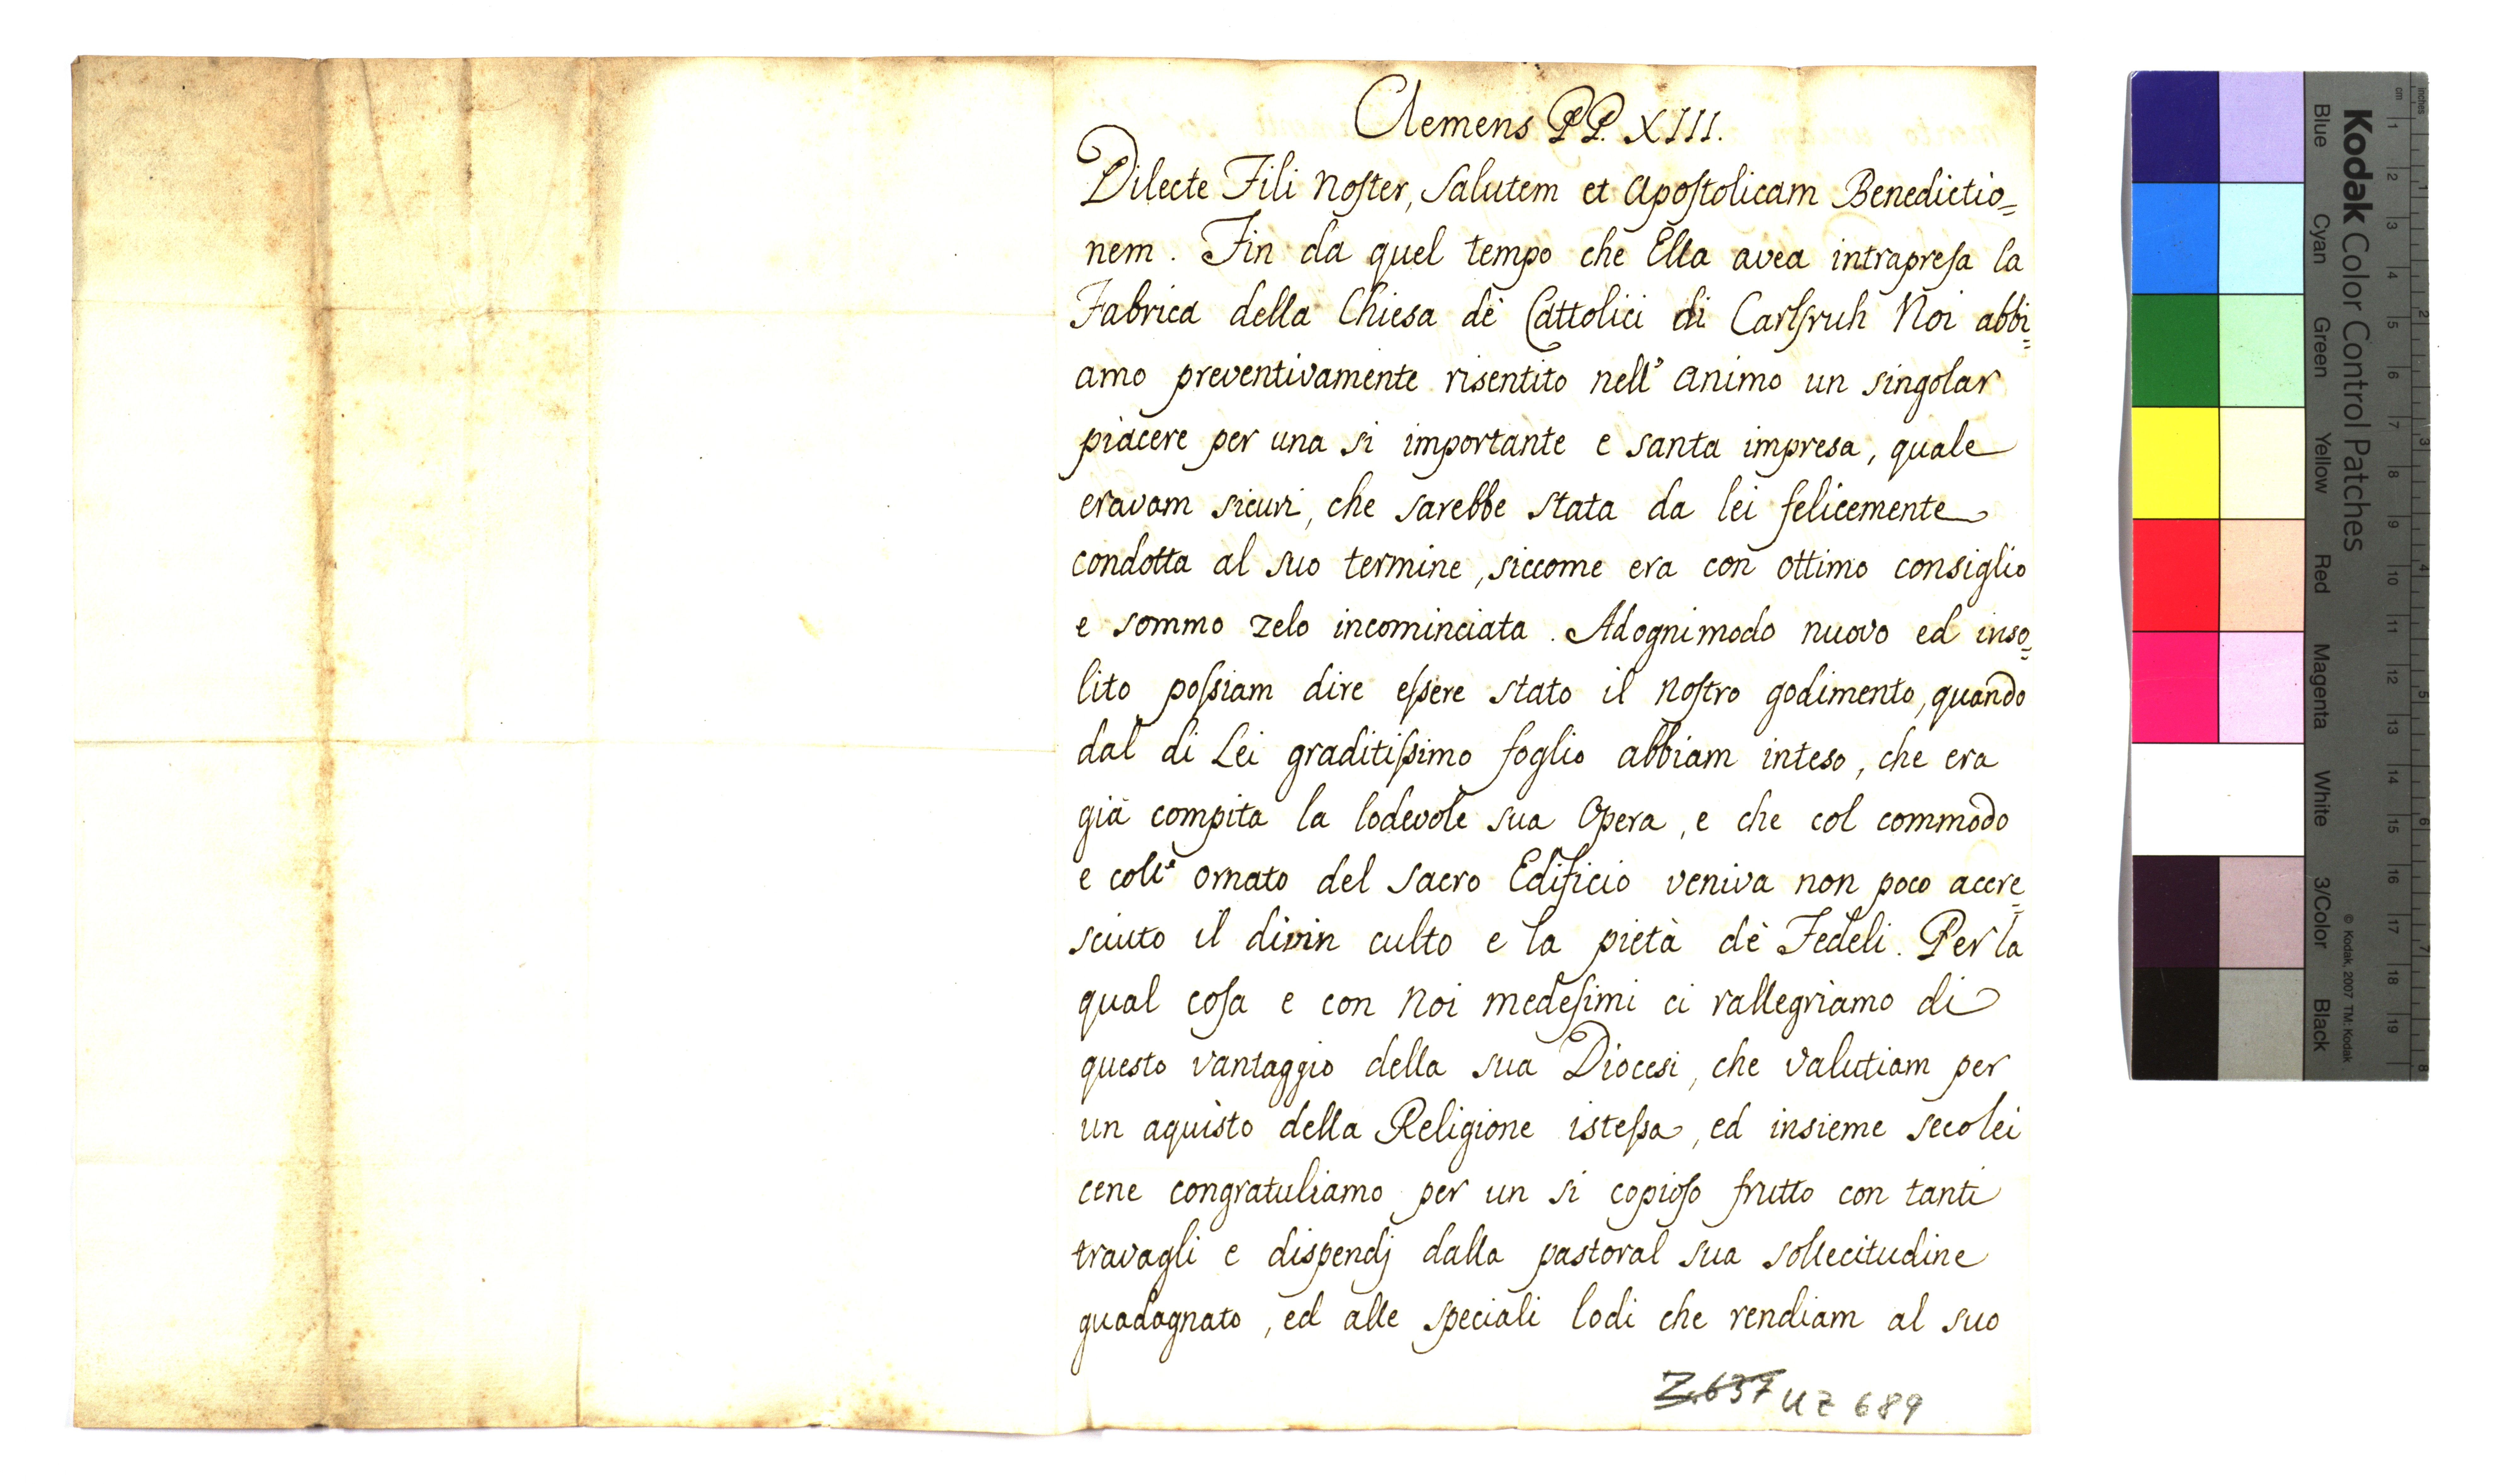 Clemens PP. XIII.
Dilecte Fili Noſter, Salutem et Apoſtolicam Benedictio=
nem. Fin da quel tempo che Ella avea intrapreſa la
Fabrica della Chiesa dè Cattolici di Carlſruh Noi abbi=
amo preventivamente risentito nell' Animo un singolar
piacere per una si importante e santa impresa, quale
eravam sicuri, che sarebbe stata da lei felicemente
condotta al suo termine, siccome era con ottimo consiglio
e sommo zelo incominciata. Adognimodo nuovo ed inso=
lito poſsiam dire eſsere stato il Noſtro godimento, quando
dal di Lei graditiſsimo foglio abbiam inteso, che era
già compita la lodevole sua Opera, e che col commodo
e coll' Ornato del Sacro Edificio veniva non poco accre=
sciuto il divin culto e la pietà dè Fedeli. Per la
qual coſa e con Noi medeſimi ci rallegriamo di
questo vantaggio della sua Diocesi, che valutiam per
un aquisto della Religione isteſsa, ed insieme secolei
cene congratuliamo per un si copioſo frutto con tanti
travagli e dispendj dalla pastoral sua sollecitudine
guadagnato, ed alle speciali lodi che rendiam al suo
Z.637 UZ 689
Kodak Color Control Patches
Blue Cyan Green Yellow Red Magenta White 3/Color Black
© Kodak, 2007 TM: Kodak
cm 1 2 3 4 5 6 7 8 9 10 11 12 13 14 15 16 17 18 19
inches 1 2 3 4 5 6 7 8